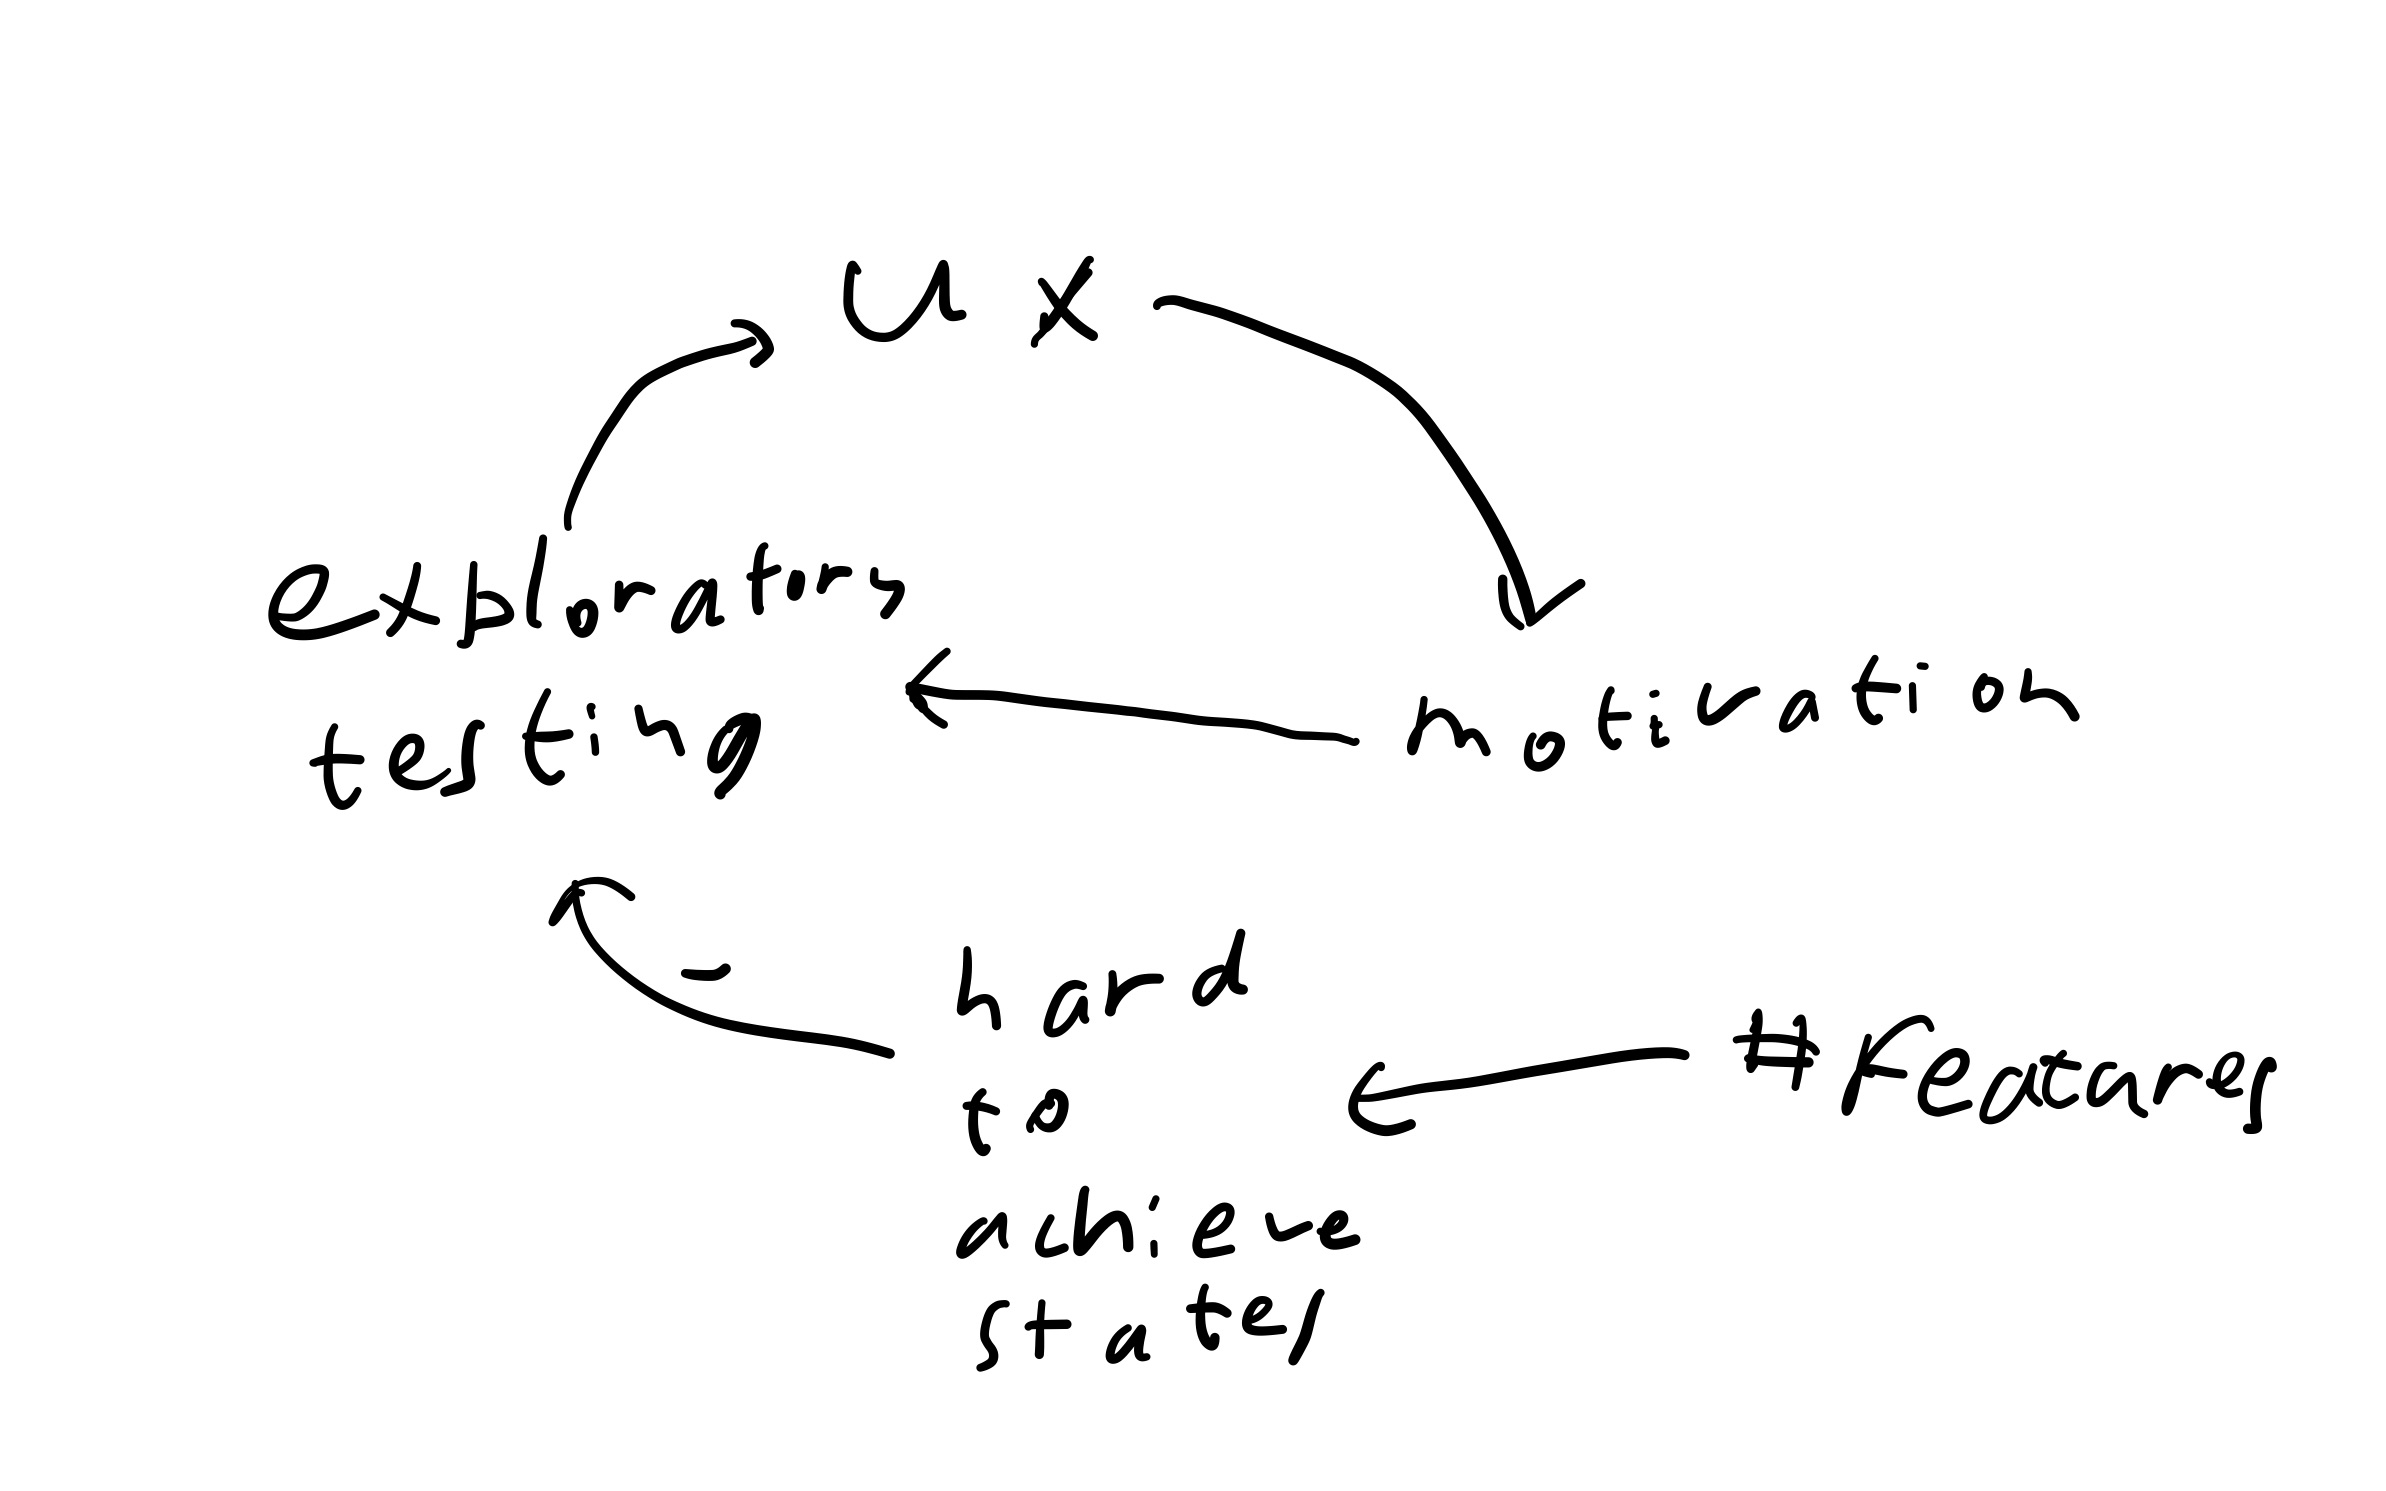 ux
exploratory
testing
motivation
-
hard
to
achieve
states
#Features